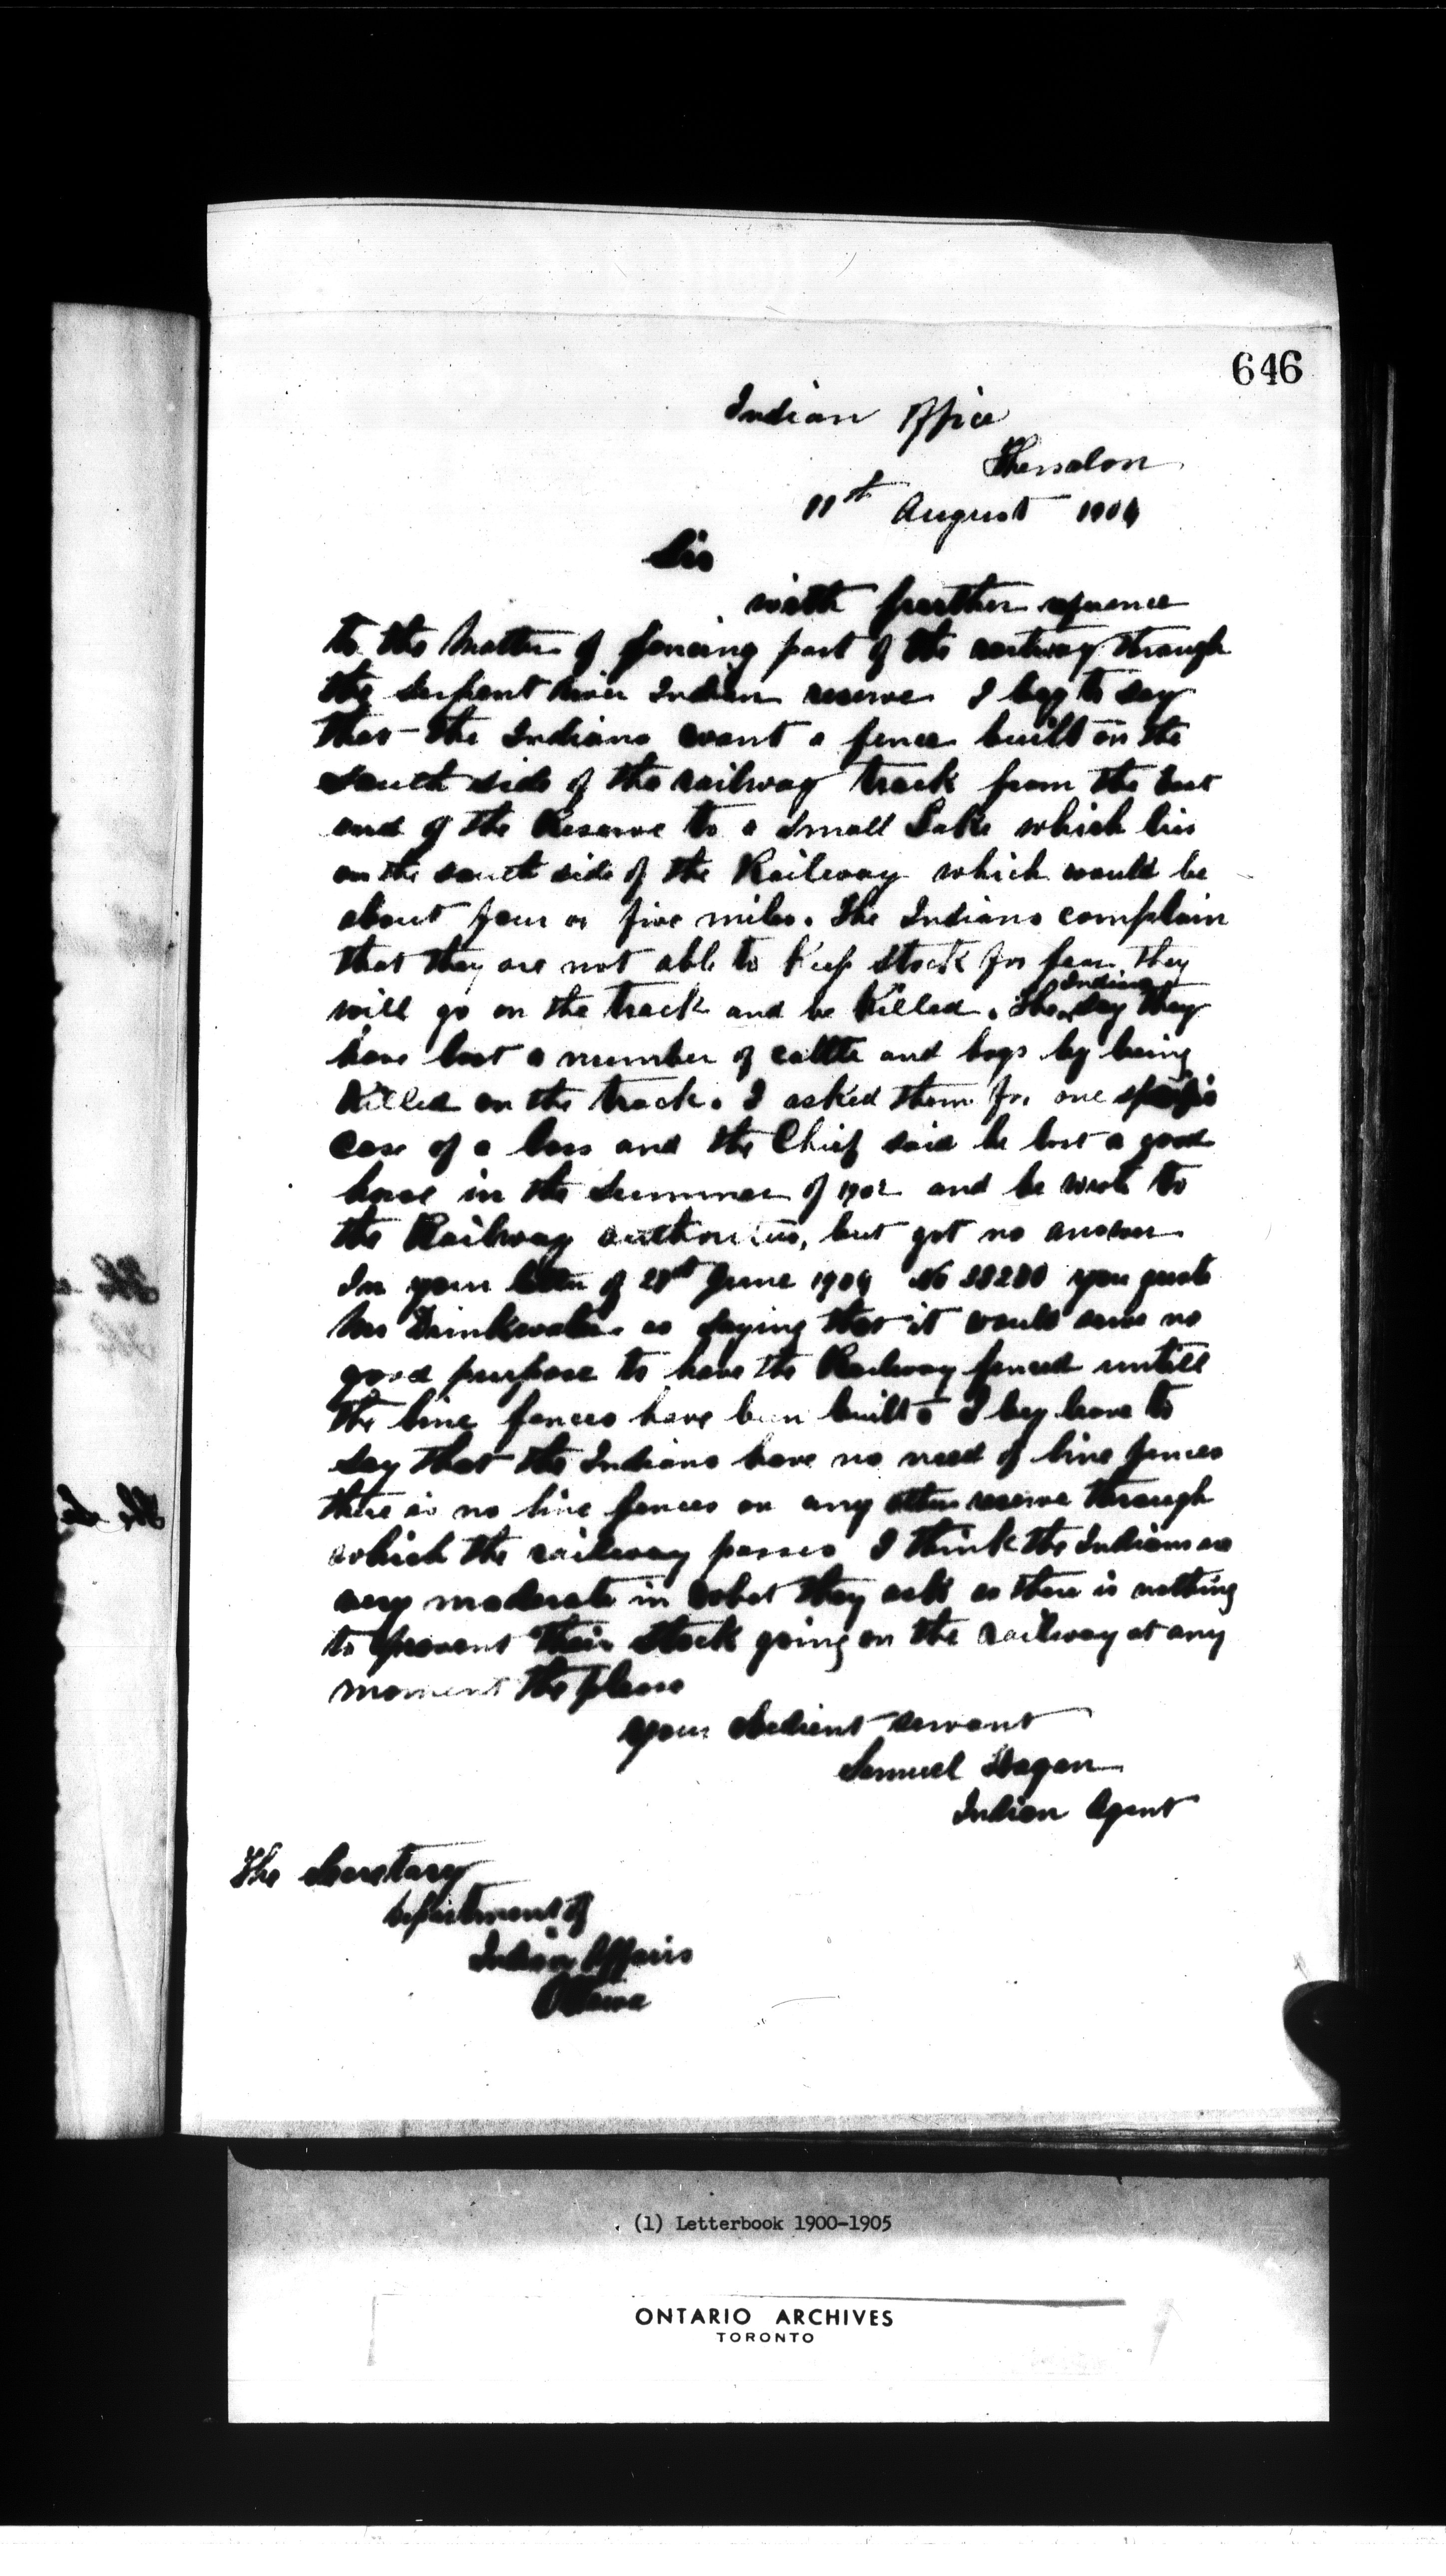 646
Indian Office
Thessalon
11th August 1904
Sir
with further reference
to the Matter of fencing part of the railway through
the Serpent River Indian reserve I beg to say
that the Indians want a fence built on the
south side of the railway track from the East
end of the Reserve to a small Lake which lies
on the south side of the Railway which would be
about four or five miles. The Indians complain
that they are not able to Keep stock for fear they
will go on the track and be Killed. The Indians say they
have lost a number of cattle and hogs by being
Killed on the track. I asked them for one specific
case of a loss and the Chief said he lost a good
horse in the Summer of 1902 and he wrote to
the Railway authorities, but got no answer
In your letter of 28th June 1904 No 38280 you quote
Mr Drinkwater as saying that it would serve no
good purpose to have the Railway fenced untill
the line fences have been built. I beg leave to
say that the Indians have no need of line fences
there is no line fences on any other reserve through
which the railway passes I think the Indians are
very moderate in what they ask as there is nothing
to prevent their stock going on the railway at any
moment the please
Your obedient servant
Samuel Hagan
Indian Agent
The Secretary
Department of
Indian Affairs
Ottawa
(1) Letterbook 1900-1905
ONTARIO ARCHIVES
TORONTO